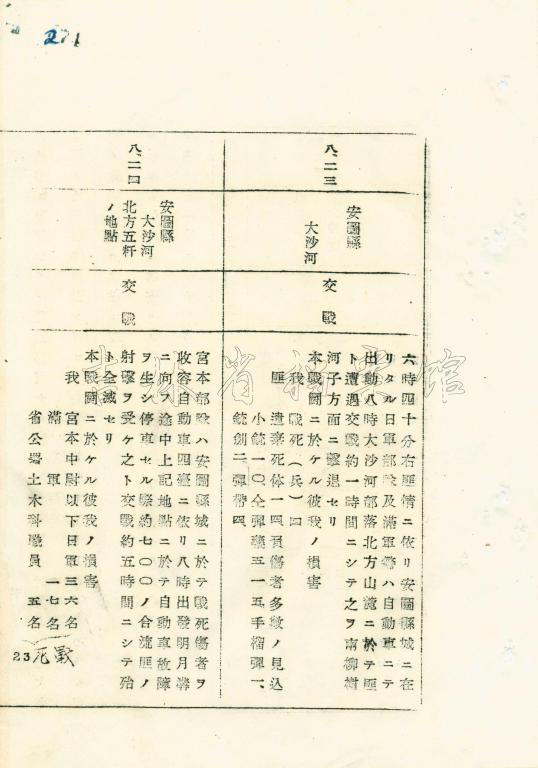 271
八、二三
安圖縣
大沙河
交戰
六時四十分右匪情ニ依リ安圖縣城ニ在
リタル日軍部隊及滿軍警ハ自動車ニテ
出動八時大沙河部落北方山麓ニ於テ匪
ト遭遇交戰約一時間ニシテ之ヲ南柳樹
河子方面ニ擊退セリ
本戰鬪ニ於ケル彼我ノ損害
我 戰死(兵)四
匪 遺棄死体一四負傷者多數ノ見込
小銃一〇仝彈藥五一五手榴彈一、
銃劍二彈帶四
八、二四
安圖縣
大沙河
北方五粁
ノ地點
交戰
宮本部隊ハ安圖縣城ニ於テ戰死傷者ヲ
收容自動車四臺ニ依リ八時出發明月溝
ニ向フ途中上記地點ニ於テ自動車故障
ヲ生シ停車セル際約七〇〇ノ合流匪ノ
射擊ヲ受ケ之ト交戰約五時間ニシテ殆
ト全滅セリ
本戰鬪ニ於ケル彼我ノ損害
我 宮本中尉以下日軍三六名
滿軍 一七名
省公署土木科職員 五名
戰死
23
吉林省档案馆